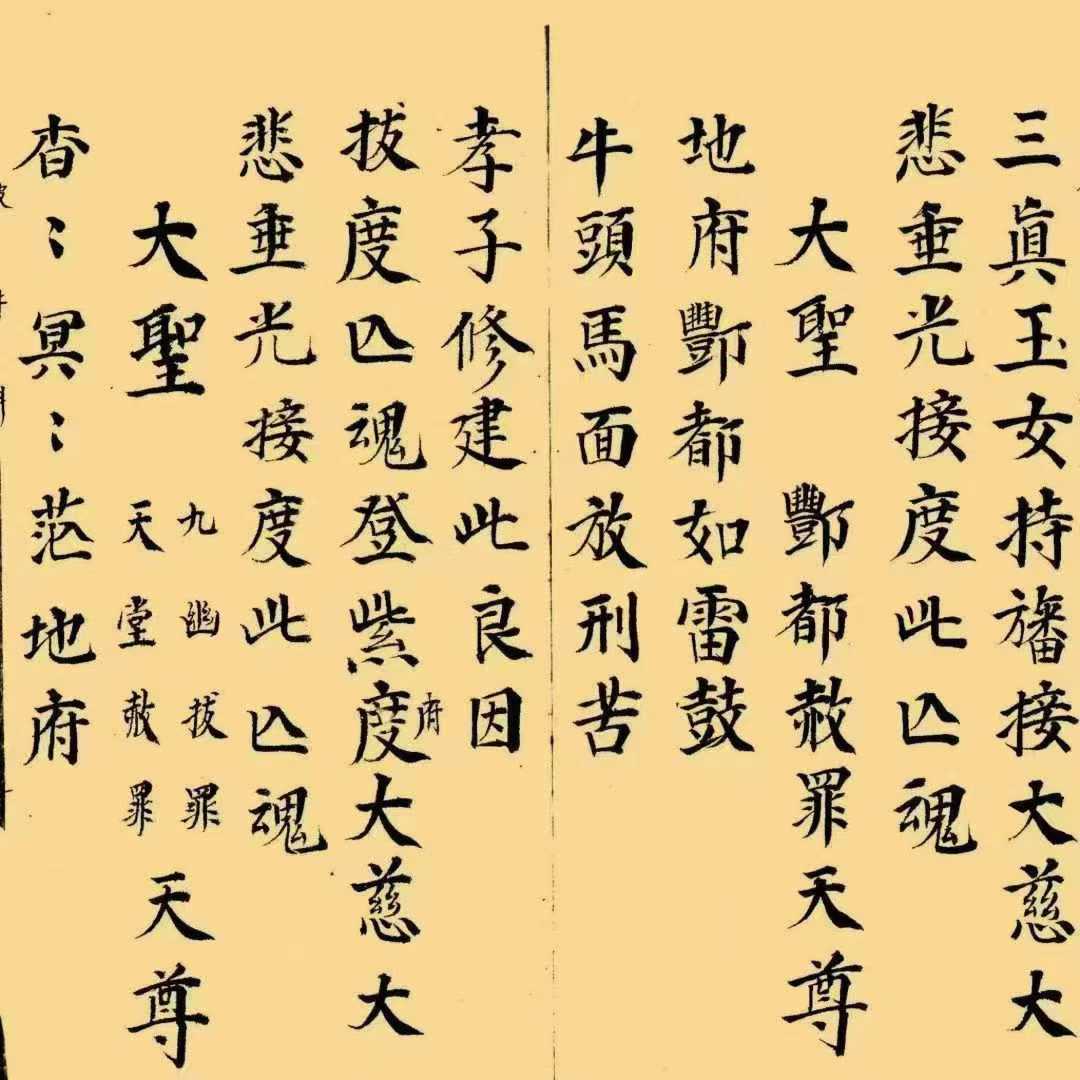 三眞玉女持旛接大慈大
悲垂光接度此亾魂
大聖 酆都赦罪天尊
地府酆都如雷鼓
牛頭馬面放刑苦
孝子修建此良因
拔度亾魂登紫度府大慈大
悲垂光接度此亾魂
大聖 九幽拔罪 天堂赦罪 天尊
杳〻冥〻茫地府